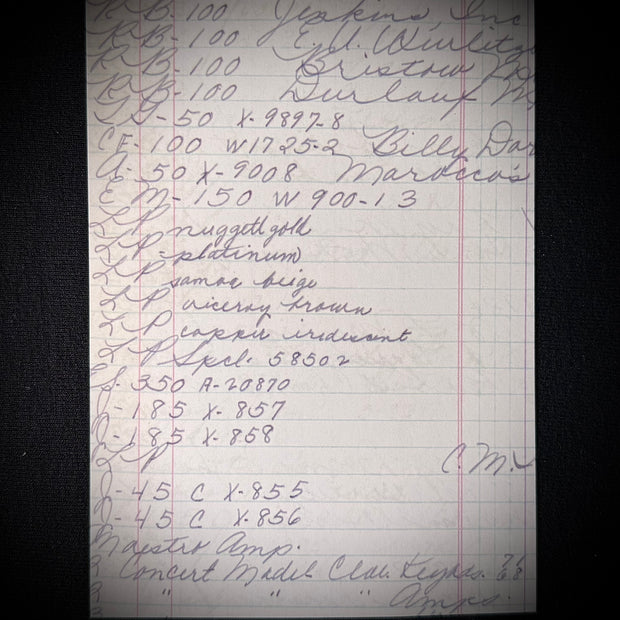 RB-100 Jenkins, Inc
RB-100 E. U. Wurlitz
RB-100 Bristow
RB-100 Durlauf M
-50 X-9897-8
CF-100 W1725-2 Billy Dar
A-50 X-9008 Marocco's
EM-150 W 900-13
LP nuggett gold
LP platinum
LP samoa beige
LP viceroy brown
LP copper iridescent
LP Spcl. 58502
S-350 A-20870
J-185 X-857
J-185 X-858
LP C.M.
J-45 C X-855
J-45 C X-856
Maestro Amp.
Concert Model Clav. Keybds. 76 68
" " " Amps.